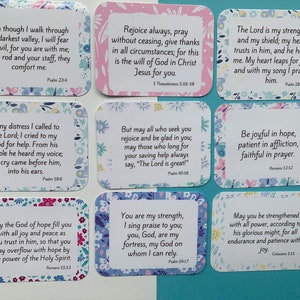 though I walk through
darkest valley, I will fear
evil, for you are with me;
rod and your staff, they
comfort me.
Psalm 23:4
Rejoice always, pray
without ceasing, give thanks
in all circumstances; for this
is the will of God in Christ
Jesus for you.
1 Thessalonians 5:16-18
The Lord is my strength
my shield; my heart
trusts in him, and he
me. My heart leaps for
and with my song I pra
him.
Psalm 28:7
my distress I called to
Lord; I cried to my
God for help. From his
temple he heard my voice;
cry came before him,
into his ears.
Psalm 18:6
But may all who seek you
rejoice and be glad in you;
may those who long for
your saving help always
say, "The Lord is great!"
Psalm 40:16
Be joyful in hope,
patient in affliction,
faithful in prayer.
Romans 12:12
the God of hope fill you
with all joy and peace as
trust in him, so that you
may overflow with hope by
power of the Holy Spirit.
Romans 15:13
You are my strength,
I sing praise to you;
you, God, are my
fortress, my God on
whom I can rely.
Psalm 59:17
May you be strengthened
with all power, according to
his glorious might, for all
endurance and patience with
joy.
Colossians 1:11